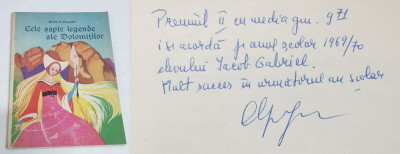 Cele șapte legende
ale Dolomiților
Premiul II cu media gen. 9,71
i se acordă pe anul școlar 1969/70
elevului Iacob Gabriel.
Mult succes în următorul an școlar